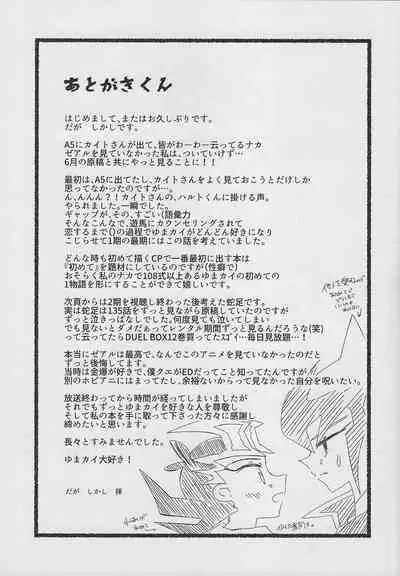 あとがきくん
はじめまして、またはお久しぶりです。
だが　しかしです。
A5にカイトさんが出て、皆がわーわー云ってるナカ
ゼアルを見ていなかった私は、ついていけず…
6月の原稿と共にやっと見ることに！！
最初は、A5に出てたし、カイトさんをよく見ておこうとだけしか
思ってなかったのですが…。
ん、んんん？！カイトさんの、ハルトくんに掛ける声。
やられました。一瞬でした。
ギャップが、その、すごい（語彙力
そんなこんなで、遊馬にカウンセリングされて
恋するまで()の過程でゆまカイがどんどん好きになり
こじらせて1期の最期にはこの話を考えていました。
どんな時も初めて描くCPで一番最初に出す本は
『初めて』を題材にしているのですが（性癖で）
おそらく私のナカで108式以上あるゆまカイの初めての
1物語を形にすることができて嬉しいです。
次頁からは2期を視聴し終わった後考えた蛇足です。
実は蛇足は135話をずっと見ながら原稿していたのですが
ずっと泣きっぱなしでした。何度見ても泣いてしまい
でも見ないとダメだぁってレンタル期間ずっと見るんだろうな（笑）
って云ってたらDUEL BOX12巻買ってたｽｺﾞｨ…毎日見放題…！
本当にゼアルは最高で、なんでこのアニメを見ていなかったのだと
ずっと後悔してます。
当時は金爆が好きで、僕クエがEDだってこと知ってたんですが
別のホビアニにはまってたし、余裕ないからって見なかった自分を呪いたい。
放送終わってから時間が経ってしまいましたが
それでもずっとゆまカイを好きな人を尊敬し
そして私の本を手に取って下さった方々に感謝し
締めたいと思います。
長々とすみませんでした。
ゆまカイ大好き！
だが　しかし　拝